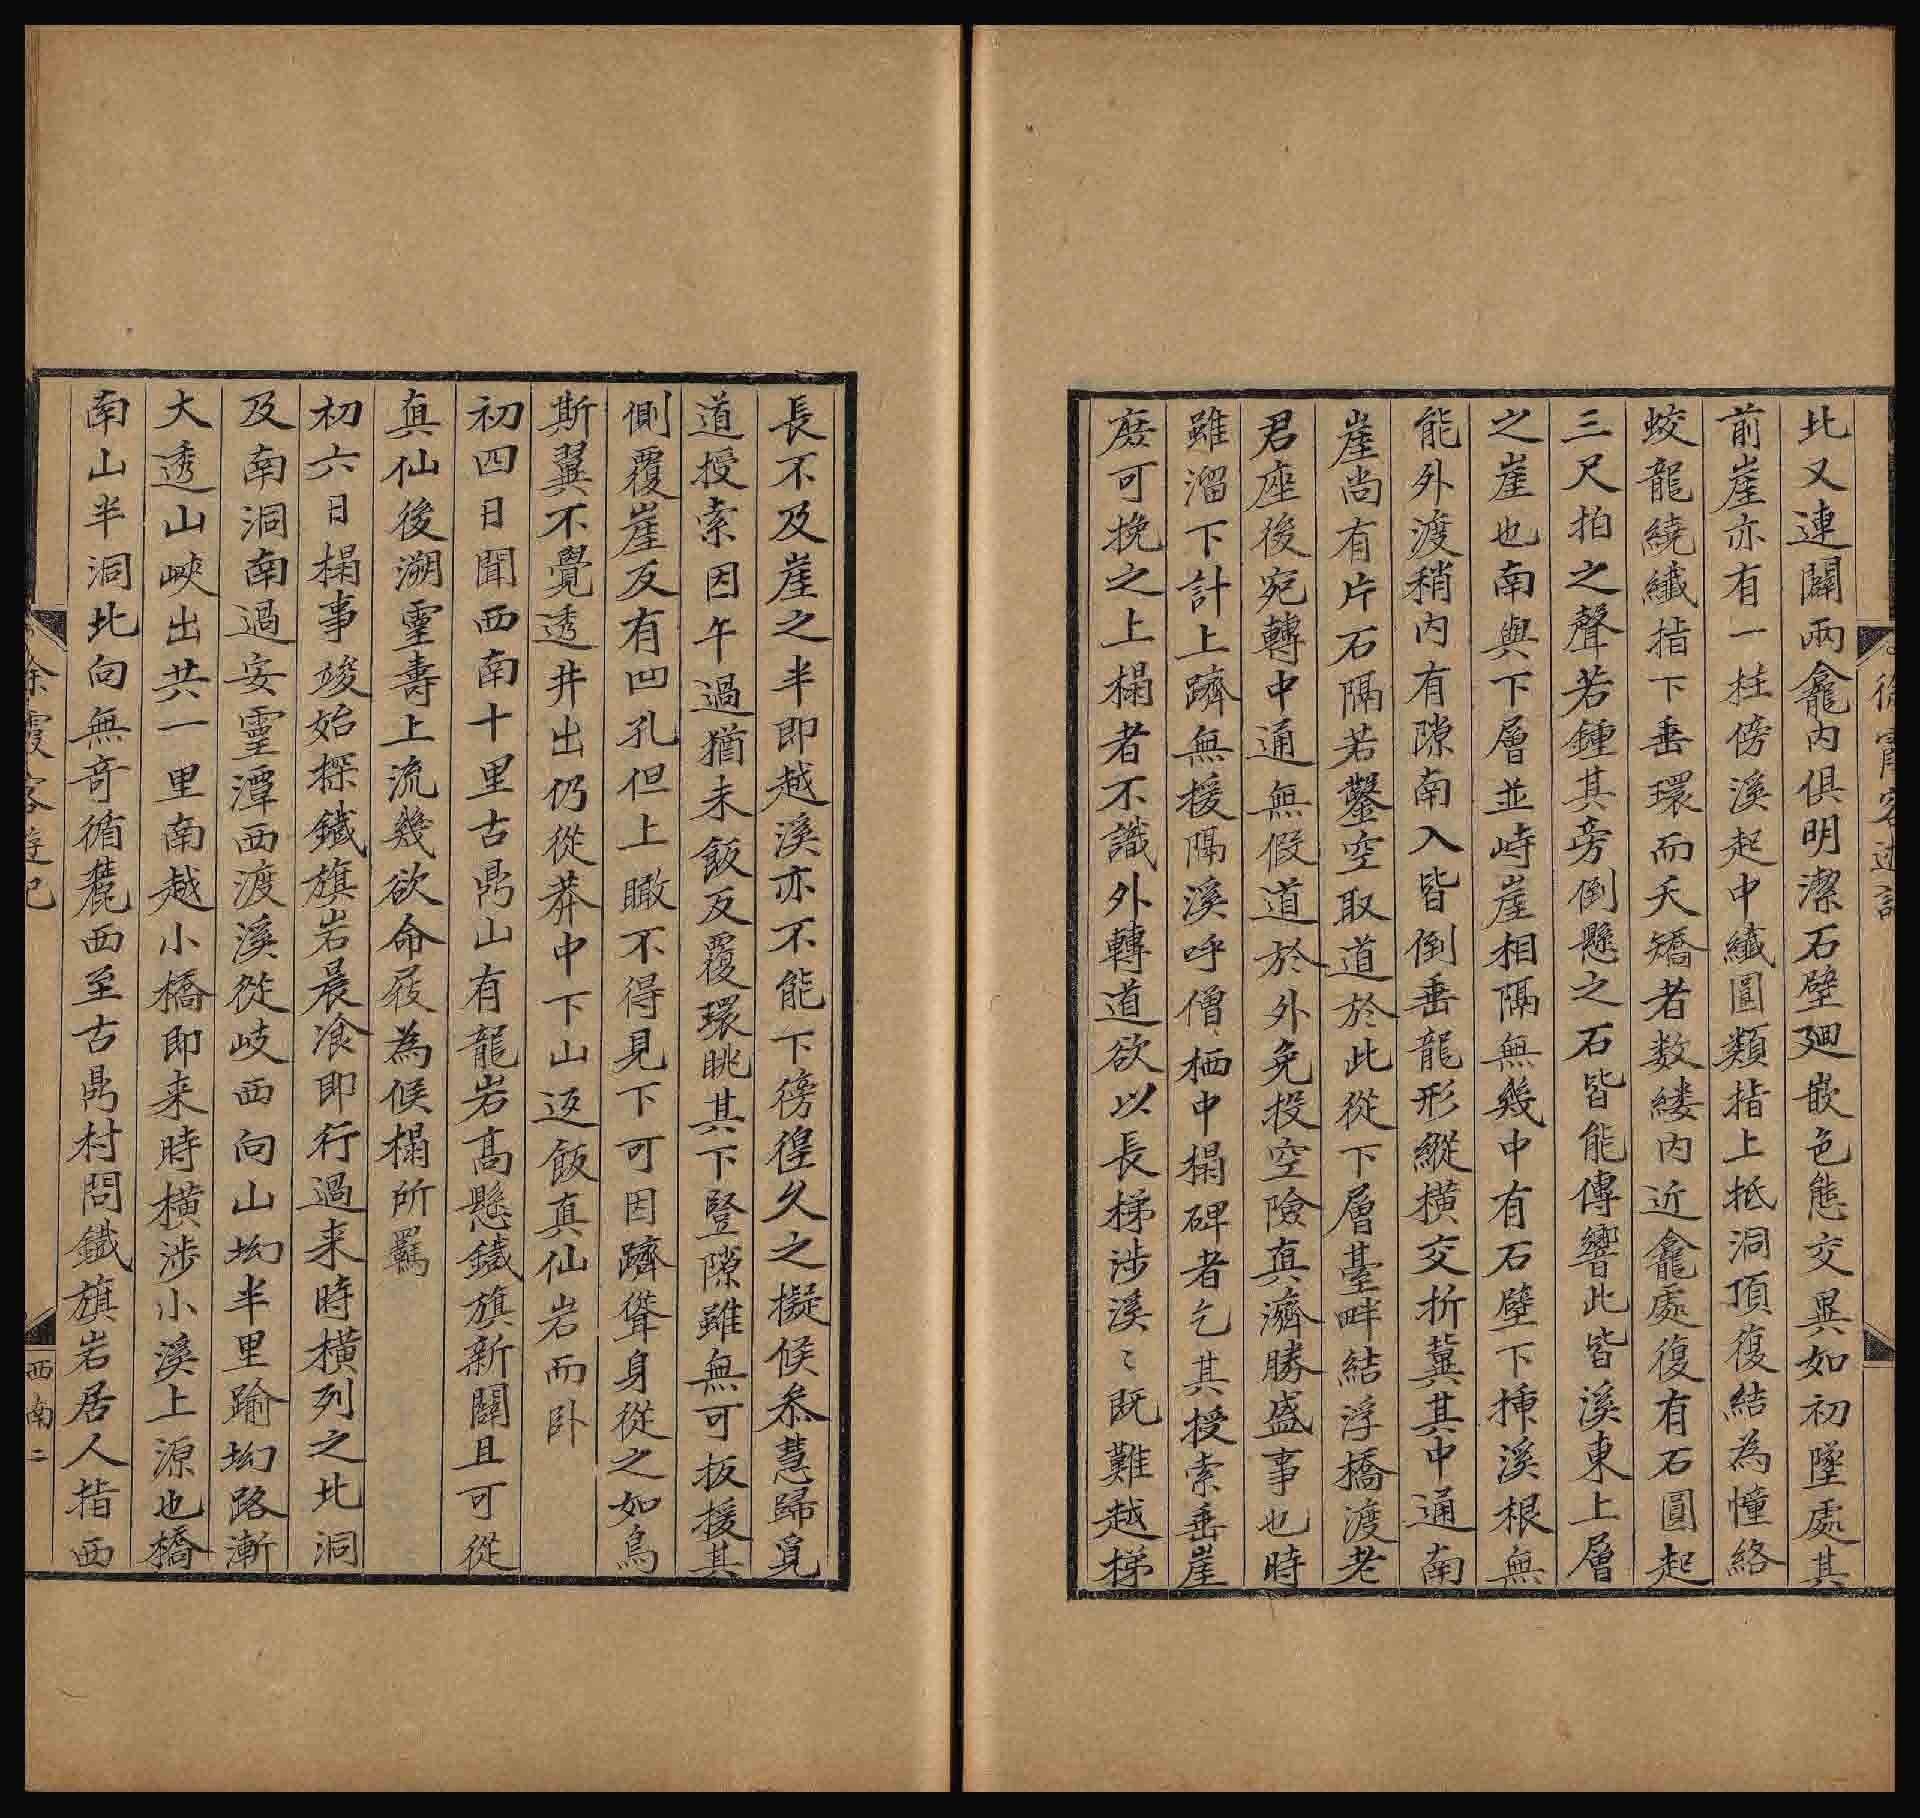 徐霞客遊記
北又連闢兩龕內俱明潔石壁廻嵌色態交異如初墜處其
前崖亦有一柱傍溪起中纖圓類指上抵洞頂復結為幢絡
蛟龍繞纖指下垂環而夭矯者数縷內近龕處復有石圓起
三尺拍之聲若鍾其旁倒懸之石皆能傳響此皆溪東上層
之崖也南與下層並峙崖相隔無幾中有石壁下揷溪根無
能外渡稍內有隙南入皆倒垂龍形縱橫交折冀其中通南
崖尚有片石隔若鑿空取道於此從下層臺畔結浮橋渡老
君座後宛轉中通無假道於外免投空險真濟勝盛事也時
雖溜下計上躋無援隔溪呼僧栖中榻碑者乞其授索垂崖
庶可挽之上榻者不識外轉道欲以長梯涉溪〻既難越梯
長不及崖之半即越溪亦不能下徬徨久之擬候叅慧歸覓
道授索因午過猶未飯反覆環眺其下豎隙雖無可扳援其
側覆崖反有凹孔但上瞰不得見下可因躋聳身從之如鳥
斯翼不覺透井出仍從莽中下山返飯真仙岩而卧
初四日聞西南十里古鼎山有龍岩高懸鐵旗新闢且可從
真仙後溯靈壽上流幾欲命屐為候榻所羈
初六日榻事竣始探鐵旗岩晨飡即行過来時橫列之北洞
及南洞南過安靈潭西渡溪從岐西向山坳半里踰坳路漸
大透山峽出共一里南越小橋即来時橫涉小溪上源也橋
南山半洞北向無奇循麓西至古鼎村問鐵旗岩居人指西
徐霞客遊記
西南二